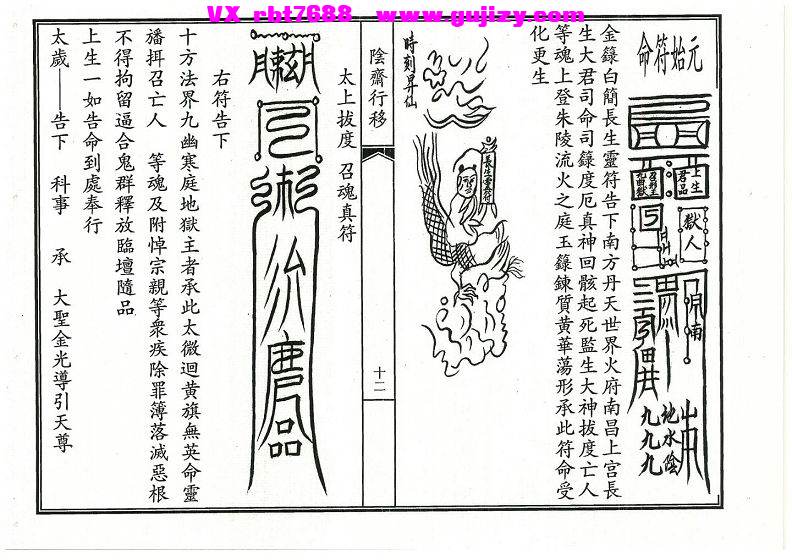 VX rbt7688 www.gujizy.com
元始符命
上生
君品
獄人
山
九九九
金籙白簡長生靈符告下南方丹天世界火府南昌上宮長
生大君司命司籙度厄真神回骸起死監生大神拔度亡人
等魂上登朱陵流火之庭玉籙鍊質黃華蕩形承此符命受
化更生
長生靈符
時刻昇仙
陰齋行移
十二
太上拔度 召魂真符
右符告下
十方法界九幽寒庭地獄主者承此太微迴黃旗無英命靈
潘拜召亡人 等魂及附悼宗親等衆疾除罪簿落滅惡根
不得拘留逼合鬼群釋放臨壇隨品
上生一如告命到處奉行
太歲——告下 科事 承 大聖金光導引天尊